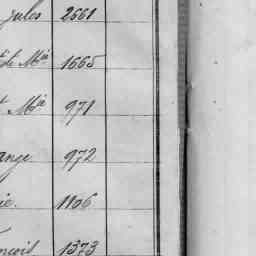 Jules 2661
de Mie 1665
t Mie 971
ange 972
ie. 1106
ançois 1373